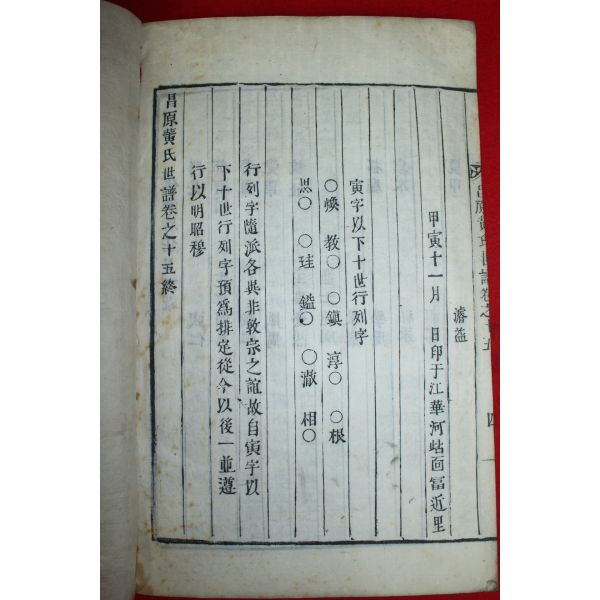 昌原黃氏世譜卷之十五 四
濬益
甲寅十一月 日印于江華河岾面富近里
寅字以下十世行列字
○煥 敎○ ○鎭 淳○ ○根
思○ ○珪 鎰○ ○澈 相○
行列字隨派各異非敦宗之誼故自寅字以
下十世行列字預爲排定從今以後一並遵
行以明昭穆
昌原黃氏世譜卷之十五終